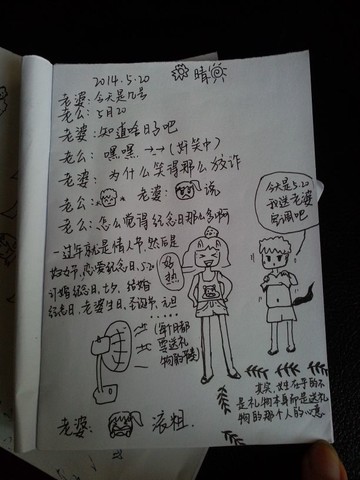 2014.5.20 晴
老婆:今天是几号
老公:5月20
老婆:知道啥日子吧
老公:嘿嘿 →→(奸笑中)
老婆:为什么笑得那么奸诈
老公: 老婆 说
老公:怎么觉得纪念日那么多啊
一过年就是情人节,然后是
妇女节,恋爱纪念日,5.20
订婚纪念日,七夕,结婚
纪念日,老婆生日,圣诞节,元旦
好热
(每个月都
要送礼
物的节奏)
今天是5.20
我送老婆
自调吧
其实,女生在乎的不
是礼物本身而是送礼
物的那个人的心意
老婆: 滚粗.